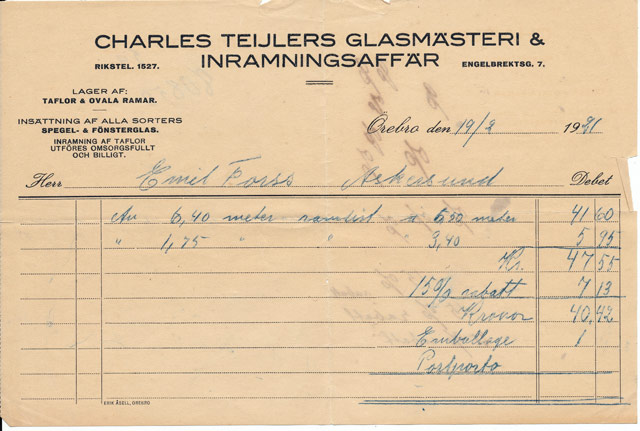 CHARLES TEIJLERS GLASMÄSTERI &
INRAMNINGSAFFÄR
RIKSTEL. 1527.
ENGELBREKTSG. 7.
LAGER AF:
TAFLOR & OVALA RAMAR.
INSÄTTNING AF ALLA SORTERS
SPEGEL- & FÖNSTERGLAS.
INRAMNING AF TAFLOR
UTFÖRES OMSORGSFULLT
OCH BILLIGT.
Örebro den 19/2 1921
Herr Emil Forss Askersund Debet
Av 6,40 meter ramlist á 6,50 meter 41 60
" 1,75 " " 3,40 5 95
Kr. 47 55
15% rabatt 7 13
Kronor 40,42
Emballage 1
Postporto
ERIK ÅSELL, ÖREBRO